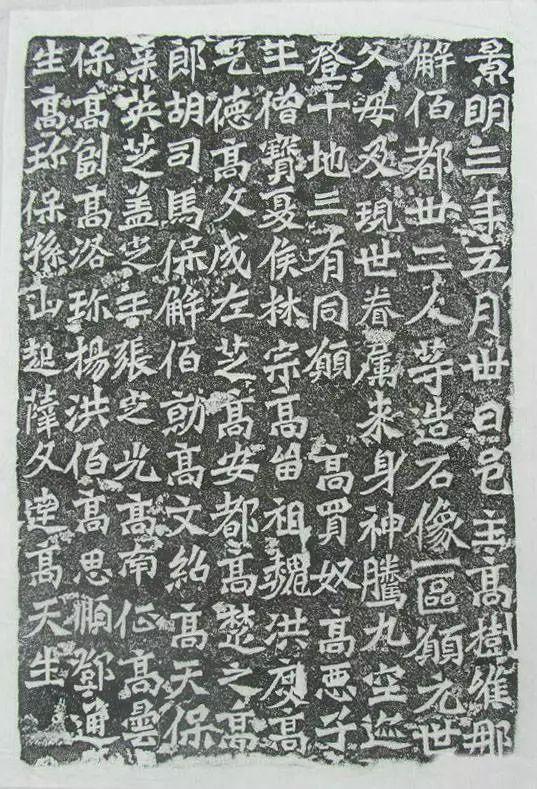 景明三年五月卅日邑主高樹維那
解佰都卅二人等造石像一區願元世
父母及現世眷屬來身神騰九空迹
登十地三有同願 高買奴高惡子
王僧寶夏侯林宗高留祖魏洪度高
乞德高文成左芝高安都高楚之高
郎胡司馬保解佰勍高文紹高天保
英芝蓋定王張定光高南高曇
保高副高洛珎楊洪佰高思順鄧通
生高珎保孫山起薛文達高天生